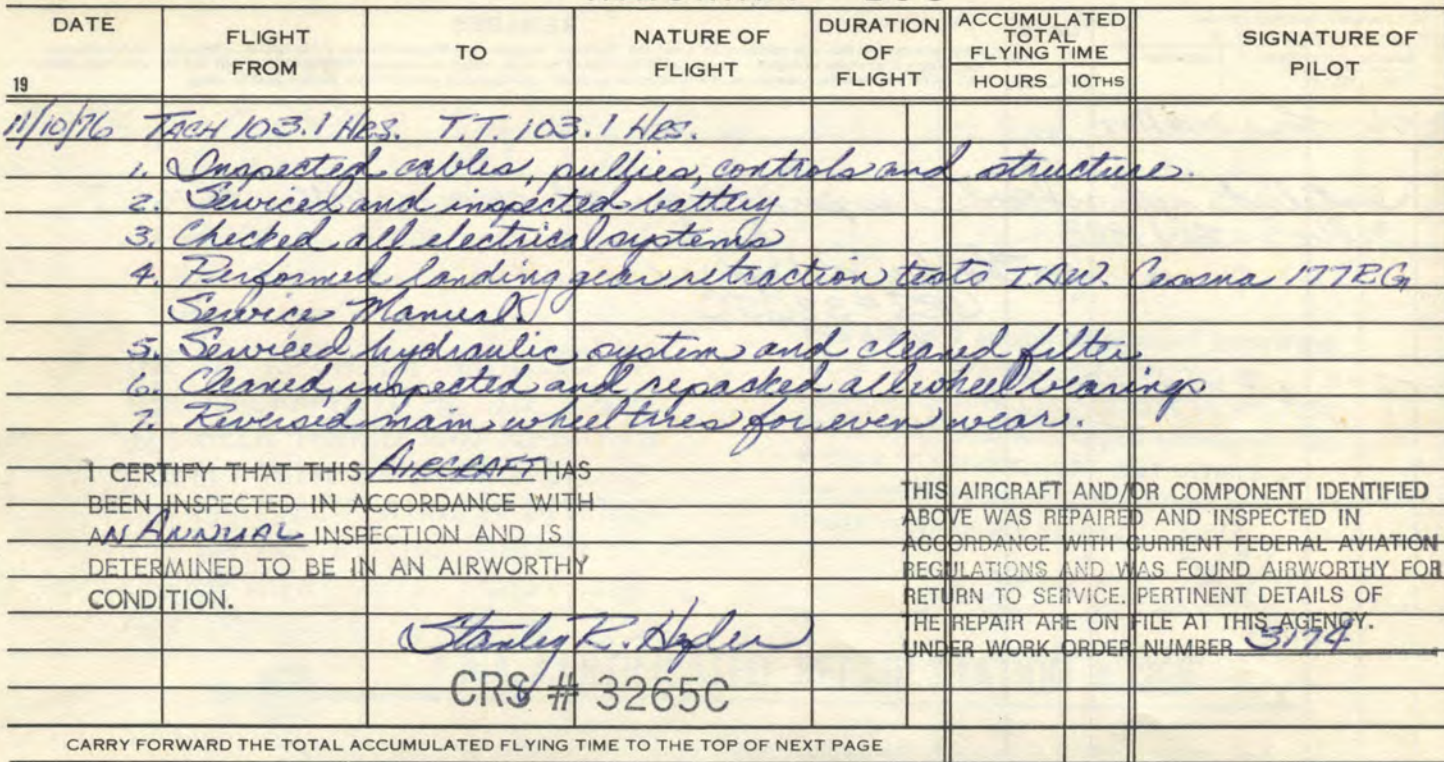 DATE FLIGHT FROM TO NATURE OF FLIGHT DURATION OF FLIGHT ACCUMULATED TOTAL FLYING TIME HOURS 10THS SIGNATURE OF PILOT
19
11/10/76 TACH 103.1 HRS. T.T. 103.1 HRS.
1. Inspected cables, pullies, controls and structure.
2. Serviced and inspected battery
3. Checked all electrical systems
4. Performed landing gear retraction tests I.A.W. Cessna 177RG
Service Manual.
5. Serviced hydraulic system and cleaned filter
6. Cleaned, inspected and repacked all wheel bearings
7. Reversed main wheel tires for even wear.
I CERTIFY THAT THIS AIRCRAFT HAS
BEEN INSPECTED IN ACCORDANCE WITH
AN ANNUAL INSPECTION AND IS
DETERMINED TO BE IN AN AIRWORTHY
CONDITION.
Stanley R.
CRS # 3265C
THIS AIRCRAFT AND/OR COMPONENT IDENTIFIED
ABOVE WAS REPAIRED AND INSPECTED IN
ACCORDANCE WITH CURRENT FEDERAL AVIATION
REGULATIONS AND WAS FOUND AIRWORTHY FOR
RETURN TO SERVICE. PERTINENT DETAILS OF
THE REPAIR ARE ON FILE AT THIS AGENCY.
UNDER WORK ORDER NUMBER 3174
CARRY FORWARD THE TOTAL ACCUMULATED FLYING TIME TO THE TOP OF NEXT PAGE